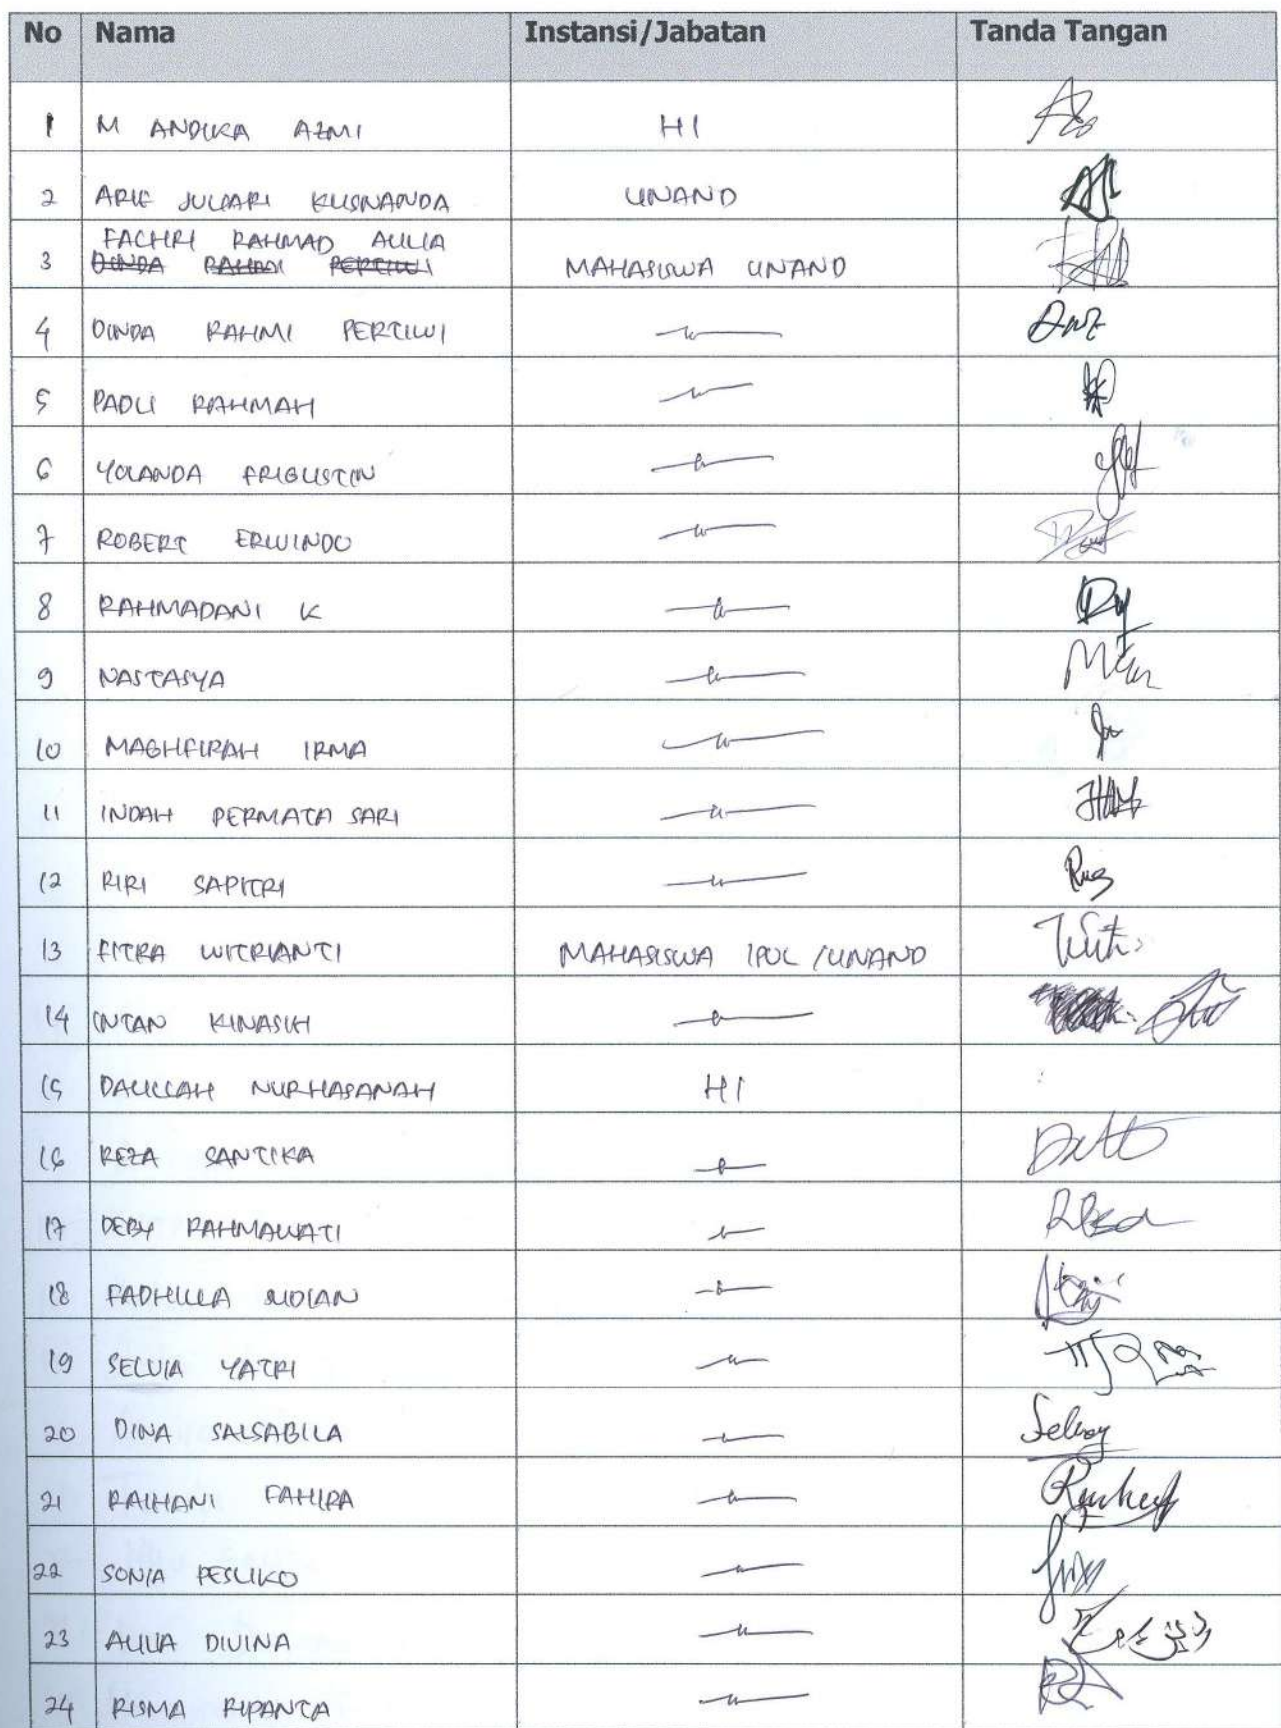 No Nama Instansi/Jabatan Tanda Tangan
1 M ANDIKA AZMI HI
2 ARIF JULIARI KUSNANDA UNAND
FACHRI RAHMAD AULIA
3 DINDA RAHMI PERTIWI MAHASISWA UNAND
4 DINDA RAHMI PERTIWI
5 PADLI RAHMAH
6 YOLANDA FRIGUSTIN
7 ROBERT ERWINDO
8 RAHMADANI K
9 NASTASYA
10 MAGHFIRAH IRMA
11 INDAH PERMATA SARI
12 RIRI SAPITRI
13 FITRA WITRIANTI MAHASISWA IPOL /UNAND
14 INTAN KINASIH
15 DALILLAH NURHASANAH HI
16 REZA SANTIKA
17 DEBY RAHMAWATI
18 FADHILLA
19 SELVIA YATRI
20 DINA SALSABILA
21 RAIHANI FAHIRA
22 SONIA PESLIKO
23 AULIA DIVINA
24 RISMA RIPANTA